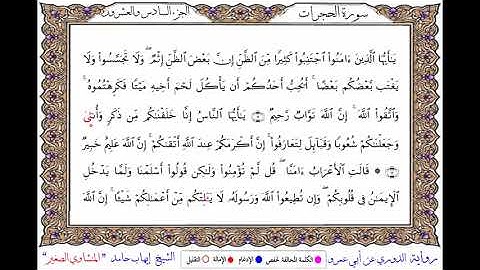 سورة الحجرات الجزء السادس والعشرون
يَٰٓأَيُّهَا ٱلَّذِينَ ءَامَنُواْ ٱجْتَنِبُواْ كَثِيرًا مِّنَ ٱلظَّنِّ إِنَّ بَعْضَ ٱلظَّنِّ إِثْمٌ ۖ وَلَا تَجَسَّسُواْ وَلَا
يَغْتَب بَّعْضُكُم بَعْضًا ۚ أَيُحِبُّ أَحَدُكُمْ أَن يَأْكُلَ لَحْمَ أَخِيهِ مَيْتًا فَكَرِهْتُمُوهُ ۚ
وَٱتَّقُواْ ٱللَّهَ ۚ إِنَّ ٱللَّهَ تَوَّابٌ رَّحِيمٌ يَٰٓأَيُّهَا ٱلنَّاسُ إِنَّا خَلَقْنَٰكُم مِّن ذَكَرٍ وَأُنثَىٰ
وَجَعَلْنَٰكُمْ شُعُوبًا وَقَبَآئِلَ لِتَعَارَفُوٓاْ ۚ إِنَّ أَكْرَمَكُمْ عِندَ ٱللَّهِ أَتْقَىٰكُمْ ۚ إِنَّ ٱللَّهَ عَلِيمٌ خَبِيرٌ
قَالَتِ ٱلْأَعْرَابُ ءَامَنَّا ۖ قُل لَّمْ تُؤْمِنُواْ وَلَٰكِن قُولُوٓاْ أَسْلَمْنَا وَلَمَّا يَدْخُلِ
ٱلْإِيمَٰنُ فِي قُلُوبِكُمْ ۖ وَإِن تُطِيعُواْ ٱللَّهَ وَرَسُولَهُۥ لَا يَأْلِتْكُم مِّنْ أَعْمَٰلِكُمْ شَيْـًٔا ۚ إِنَّ ٱللَّهَ
رواية الدوري عن أبي عمرو الكلمة المخالفة لحفص الإدغام الإمالة التقليل الشيخ إيهاب حامد "المنشاوي الصغير"